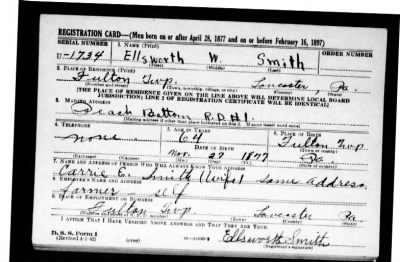 REGISTRATION CARD—(Men born on or after April 28, 1877 and on or before February 16, 1897)
SERIAL NUMBER 1. NAME (Print) ORDER NUMBER
U-1734 Ellsworth W. Smith
(First) (Middle) (Last)
2. PLACE OF RESIDENCE (Print)
Fulton Twp. Lancaster, Pa.
(Number and street) (Town, township, village, or city) (County) (State)
[THE PLACE OF RESIDENCE GIVEN ON THE LINE ABOVE WILL DETERMINE LOCAL BOARD
JURISDICTION; LINE 2 OF REGISTRATION CERTIFICATE WILL BE IDENTICAL]
3. MAILING ADDRESS
Peach Bottom R.D.#1.
[Mailing address if other than place indicated on line 2. If same insert word same]
4. TELEPHONE 5. AGE IN YEARS 6. PLACE OF BIRTH
none 64 Fulton Twp
DATE OF BIRTH (Town or county)
Nov. 27 1877 Pa.
(Exchange) (Number) (Mo.) (Day) (Yr.) (State or country)
7. NAME AND ADDRESS OF PERSON WHO WILL ALWAYS KNOW YOUR ADDRESS
Carrie E. Smith (Wife) same address.
8. EMPLOYER'S NAME AND ADDRESS
farmer self
9. PLACE OF EMPLOYMENT OR BUSINESS
Fulton Twp Lancaster Pa
(Number and street or R. F. D. number) (Town) (County) (State)
I AFFIRM THAT I HAVE VERIFIED ABOVE ANSWERS AND THAT THEY ARE TRUE.
D. S. S. Form 1
(Revised 4-1-42) (over) Ellsworth Smith